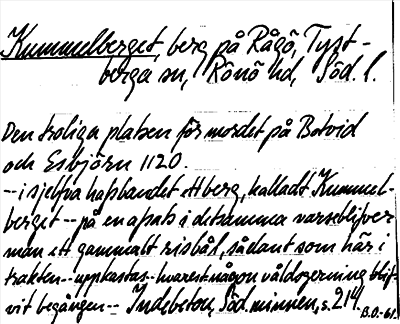 Kummelberget, berg på Rågö, Tyst-
berga sn, Rönö hd, Söd. l.
Den troliga platsen för mordet på Botvid
och Esbjörn 1120.
-- i sjelfva hafsbandet ett berg, kalladt Kummel-
berget -- på en afsats i detsamma varseblifver
man ett gammalt risbål, sådant som här i
trakten -- uppkastas -- hvarest någon våldsgerning blif-
vit begången -- Indebetou, Söd. minnen, s. 214.
B.O. -61.